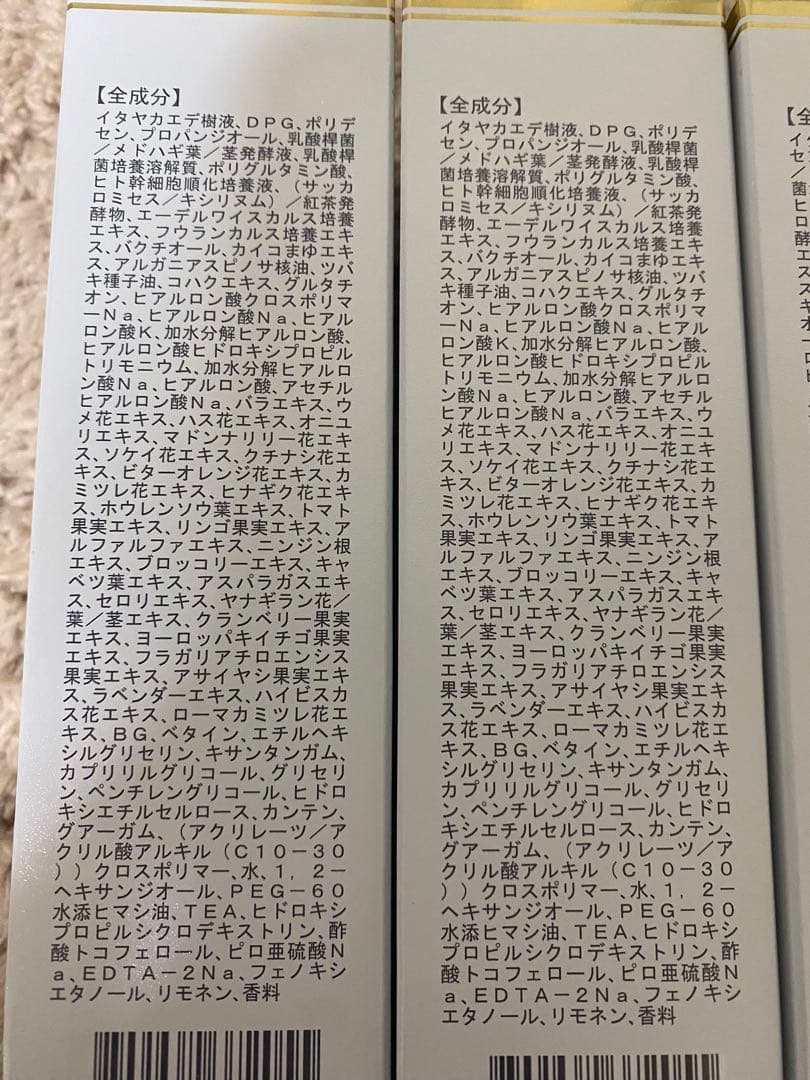 【全成分】
イタヤカエデ樹液、DPG、ポリデ
セン、プロパンジオール、乳酸桿菌
/メドハギ葉/茎発酵液、乳酸桿
菌培養溶解質、ポリグルタミン酸、
ヒト幹細胞順化培養液、(サッカ
ロミセス/キシリヌム)/紅茶発
酵物、エーデルワイスカルス培養
エキス、フウランカルス培養エキ
ス、バクチオール、カイコまゆエキ
ス、アルガニアスピノサ核油、ツバ
キ種子油、コハクエキス、グルタチ
オン、ヒアルロン酸クロスポリマ
ーNa、ヒアルロン酸Na、ヒアル
ロン酸K、加水分解ヒアルロン酸、
ヒアルロン酸ヒドロキシプロピル
トリモニウム、加水分解ヒアルロ
ン酸Na、ヒアルロン酸、アセチル
ヒアルロン酸Na、バラエキス、ウ
メ花エキス、ハス花エキス、オニユ
リエキス、マドンナリリー花エキ
ス、ソケイ花エキス、クチナシ花エ
キス、ビターオレンジ花エキス、カ
ミツレ花エキス、ヒナギク花エキ
ス、ホウレンソウ葉エキス、トマト
果実エキス、リンゴ果実エキス、ア
ルファルファエキス、ニンジン根
エキス、ブロッコリーエキス、キャ
ベツ葉エキス、アスパラガスエキ
ス、セロリエキス、ヤナギラン花/
葉/茎エキス、クランベリー果実
エキス、ヨーロッパキイチゴ果実
エキス、フラガリアチロエンシス
果実エキス、アサイヤシ果実エキ
ス、ラベンダーエキス、ハイビスカ
ス花エキス、ローマカミツレ花エ
キス、BG、ベタイン、エチルヘキ
シルグリセリン、キサンタンガム、
カプリリルグリコール、グリセリ
ン、ペンチレングリコール、ヒドロ
キシエチルセルロース、カンテン、
グアーガム、(アクリレーツ/ア
クリル酸アルキル(C10-30
))クロスポリマー、水、1,2-
ヘキサンジオール、PEG-60
水添ヒマシ油、TEA、ヒドロキシ
プロピルシクロデキストリン、酢
酸トコフェロール、ピロ亜硫酸N
a、EDTA-2Na、フェノキシ
エタノール、リモネン、香料
【全成分】
イタヤカエデ樹液、DPG、ポリデ
セン、プロパンジオール、乳酸桿菌
/メドハギ葉/茎発酵液、乳酸桿
菌培養溶解質、ポリグルタミン酸、
ヒト幹細胞順化培養液、(サッカ
ロミセス/キシリヌム)/紅茶発
酵物、エーデルワイスカルス培養
エキス、フウランカルス培養エキ
ス、バクチオール、カイコまゆエキ
ス、アルガニアスピノサ核油、ツバ
キ種子油、コハクエキス、グルタチ
オン、ヒアルロン酸クロスポリマ
ーNa、ヒアルロン酸Na、ヒアル
ロン酸K、加水分解ヒアルロン酸、
ヒアルロン酸ヒドロキシプロピル
トリモニウム、加水分解ヒアルロ
ン酸Na、ヒアルロン酸、アセチル
ヒアルロン酸Na、バラエキス、ウ
メ花エキス、ハス花エキス、オニユ
リエキス、マドンナリリー花エキ
ス、ソケイ花エキス、クチナシ花エ
キス、ビターオレンジ花エキス、カ
ミツレ花エキス、ヒナギク花エキ
ス、ホウレンソウ葉エキス、トマト
果実エキス、リンゴ果実エキス、ア
ルファルファエキス、ニンジン根
エキス、ブロッコリーエキス、キャ
ベツ葉エキス、アスパラガスエキ
ス、セロリエキス、ヤナギラン花/
葉/茎エキス、クランベリー果実
エキス、ヨーロッパキイチゴ果実
エキス、フラガリアチロエンシス
果実エキス、アサイヤシ果実エキ
ス、ラベンダーエキス、ハイビスカ
ス花エキス、ローマカミツレ花エ
キス、BG、ベタイン、エチルヘキ
シルグリセリン、キサンタンガム、
カプリリルグリコール、グリセリ
ン、ペンチレングリコール、ヒドロ
キシエチルセルロース、カンテン、
グアーガム、(アクリレーツ/ア
クリル酸アルキル(C10-30
))クロスポリマー、水、1,2-
ヘキサンジオール、PEG-60
水添ヒマシ油、TEA、ヒドロキシ
プロピルシクロデキストリン、酢
酸トコフェロール、ピロ亜硫酸N
a、EDTA-2Na、フェノキシ
エタノール、リモネン、香料